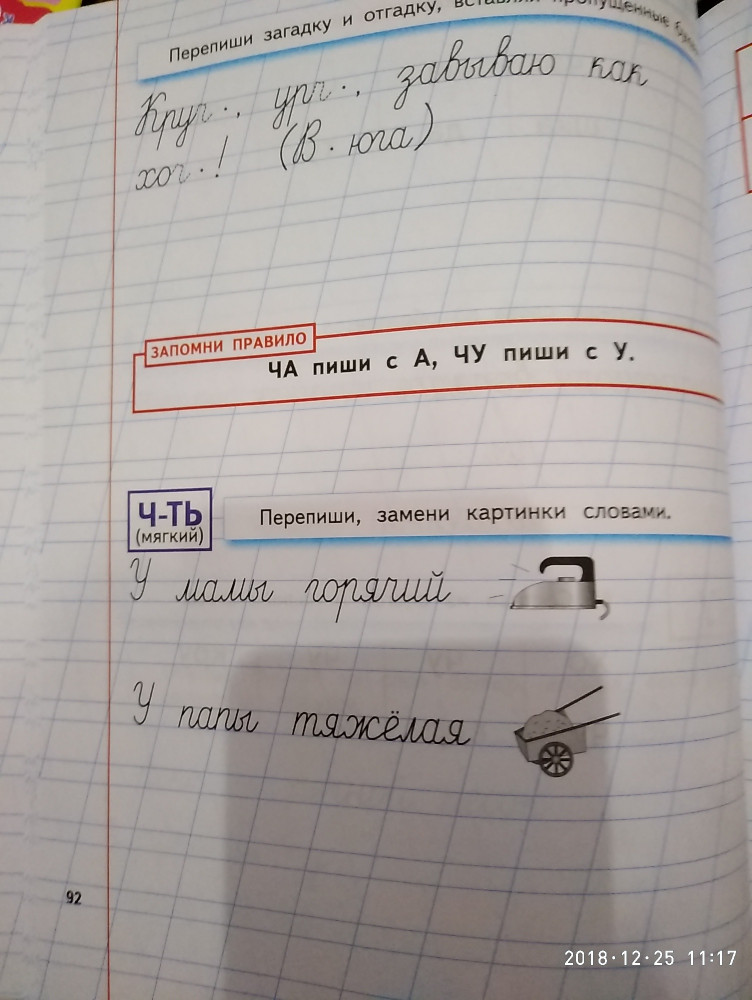 Перепиши загадку и отгадку, вставляя пропущенные
Круч·, урч·, завываю как
хоч·! (В·юга)
ЗАПОМНИ ПРАВИЛО
ЧА пиши с А, ЧУ пиши с У.
Ч-ТЬ
(мягкий)
Перепиши, замени картинки словами.
У мамы горячий
У папы тяжёлая
92
2018·12·25 11:17